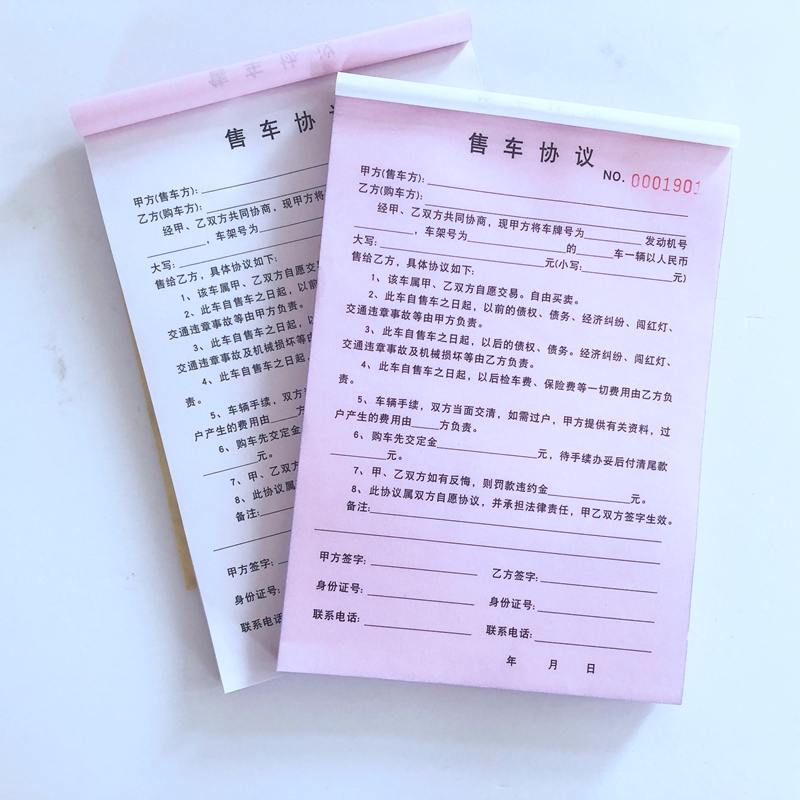 售车协议
甲方(售车方):
乙方(购车方):
经甲、乙双方共同协商，现甲方将
，车架号为
大写:
售给乙方，具体协议如下:
1、该车属甲、乙双方自愿交易
2、此车自售车之日起，以前
交通违章事故等由甲方负责。
3、此车自售车之日起，
交通违章事故及机械损坏等由
4、此车自售车之日起，
责。
5、车辆手续，双方当
户产生的费用由 方
6、购车先交定金
元。
7、甲、乙双方
8、此协议属
备注:
甲方签字:
身份证号:
联系电话:
售车协议
NO. 0001901
甲方(售车方):
乙方(购车方):
经甲、乙双方共同协商，现甲方将车牌号为 发动机号
，车架号为 的 车一辆以人民币
大写: 元(小写: 元)
售给乙方，具体协议如下:
1、该车属甲、乙双方自愿交易。自由买卖。
2、此车自售车之日起，以前的债权、债务、经济纠纷、闯红灯、
交通违章事故等由甲方负责。
3、此车自售车之日起，以后的债权、债务。经济纠纷、闯红灯、
交通违章事故及机械损坏等由乙方负责。
4、此车自售车之日起，以后检车费、保险费等一切费用由乙方负
责。
5、车辆手续，双方当面交清，如需过户，甲方提供有关资料，过
户产生的费用由 方负责。
6、购车先交定金 元，待手续办妥后付清尾款
元。
7、甲、乙双方如有反悔，则罚款违约金 元。
8、此协议属双方自愿协议，并承担法律责任，甲乙双方签字生效。
备注:
甲方签字: 乙方签字:
身份证号: 身份证号:
联系电话: 联系电话:
年 月 日